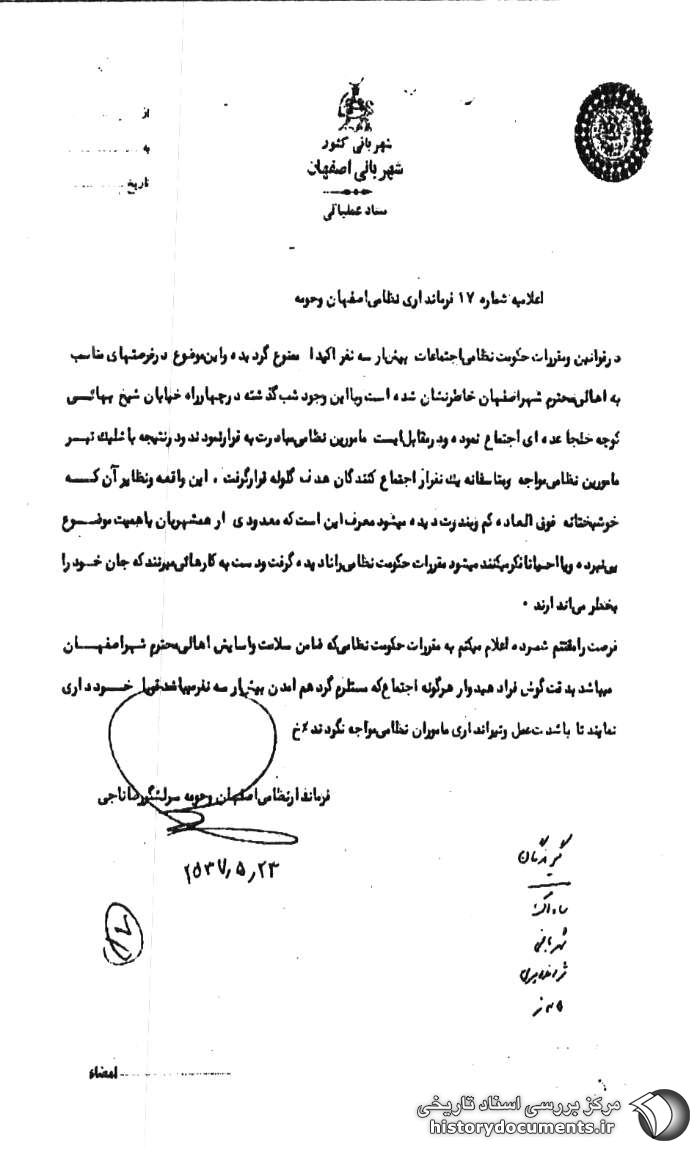 از ............
به ............
تاریخ ............
شهربانی کشور
شهربانی اصفهان
ستاد عملیاتی
اعلامیه شماره ۱۷ فرمانداری نظامی اصفهان وحومه
در قوانین ومقررات حکومت نظامی اجتماعات بیش از سه نفر اکیدا ممنوع گردیده و این موضوع در فرصتهای مناسب
به اهالی محترم شهر اصفهان خاطرنشان شده است وبا این وجود شب گذشته در چهارراه خیابان شیخ بهائی
کوچه خلجا عده ای اجتماع نموده ودر مقابل ایست مامورین نظامی مبادرت به فرار نمودند ودر نتیجه با شلیک تیر
مامورین نظامی مواجه ومتاسفانه یک نفر از اجتماع کنندگان هدف گلوله قرار گرفت . این واقعه ونظایر آن که
خوشبختانه فوق العاده کم وبندرت دیده میشود معرف این است که معدودی از همشهریان باهمیت موضوع
پی نبرده ویا احیانا فکر میکنند میشود مقررات حکومت نظامی را نادیده گرفت ودست به کارهائی میزنند که جان خود را
بخطر می اندازند .
فرصت را مغتنم شمرده اعلام میکنم به مقررات حکومت نظامی که ضامن سلامت واسایش اهالی محترم شهر اصفهان
میباشد بدقت گوش فراد هید واز هرگونه اجتماع که مستلزم گرد هم امدن بیش از سه نفر میباشد قویا خود داری
نمایند تا با شدت عمل وتیراندازی ماموران نظامی مواجه نگردند٪خ
فرماندار نظامی اصفهان وحومه سرلشگر رضا ناجی
۲۵۳۷٫۵٫۲۳
گیرندگان
ساواک
شهربانی
ژاندارمری
امضاء ............
مرکز بررسی اسناد تاریخی
historydocuments.ir